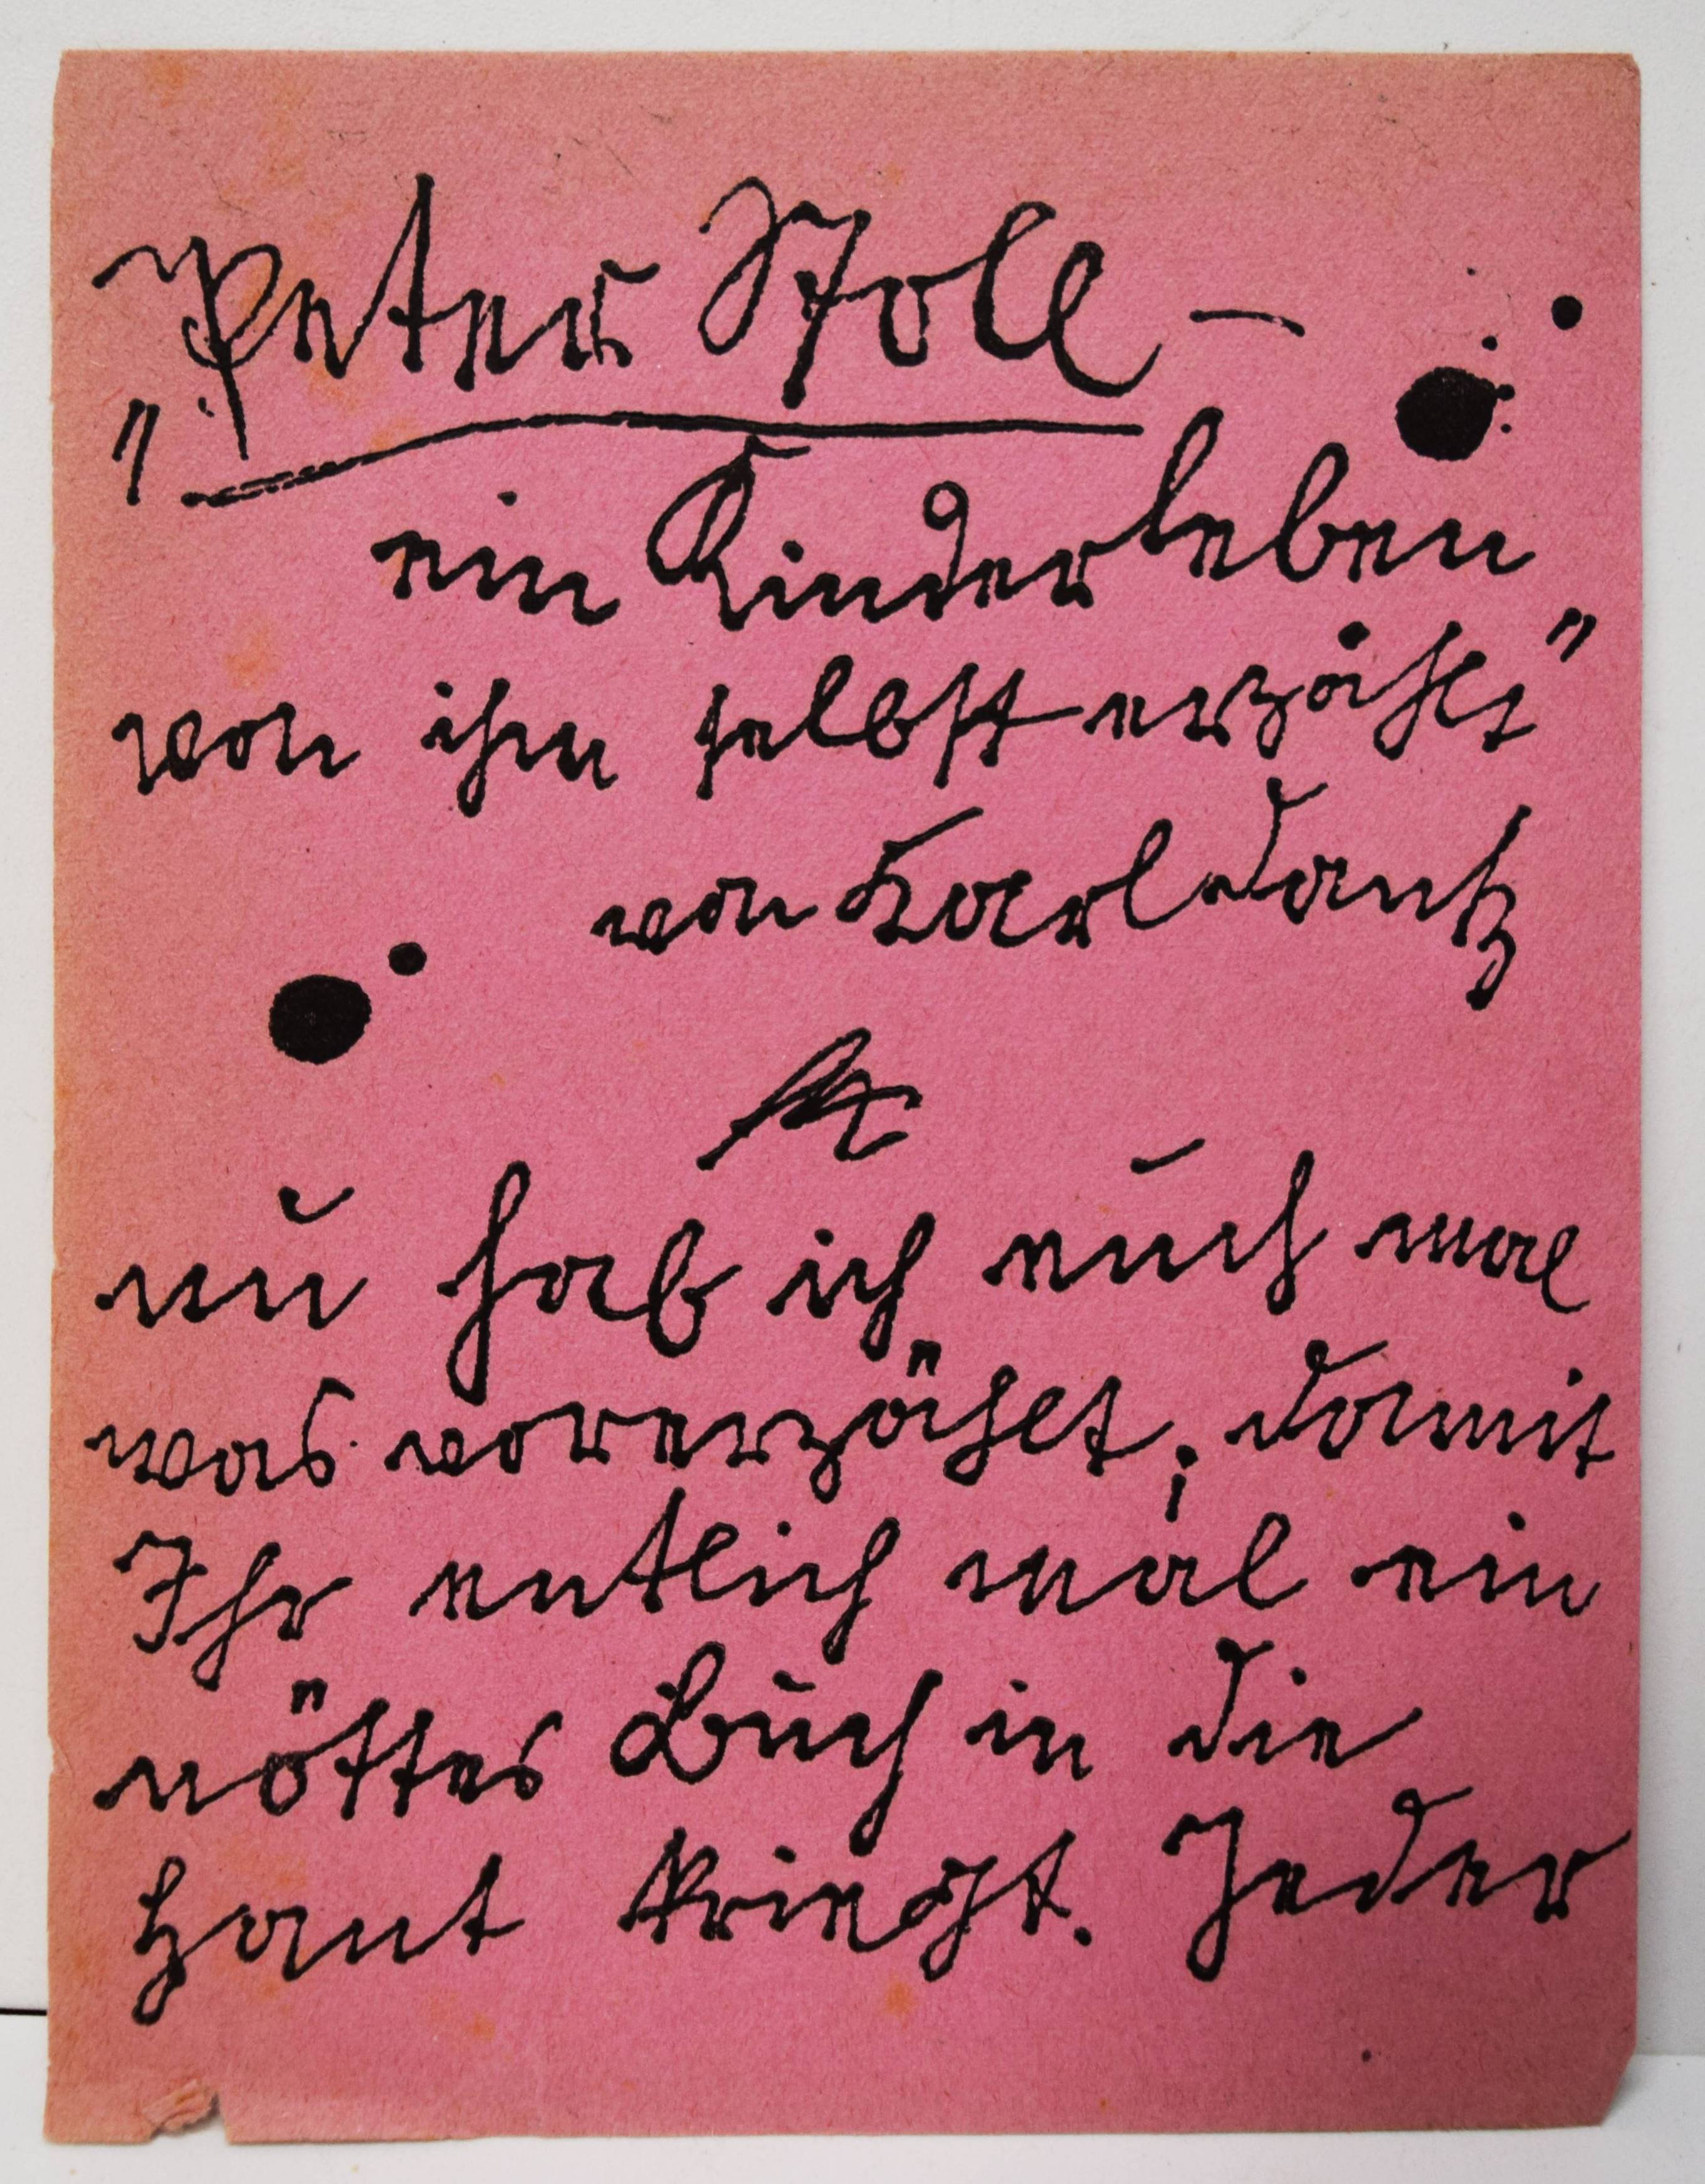 Peter Stoll —
„
ein Kinderleben
von ihm selbst erzählt"
von Karl Dantz
nu hab ich euch mal
was vorerzählt; damit
Ihr entlich mal ein
nöttes Buch in die
Hant kriegt. Jeder